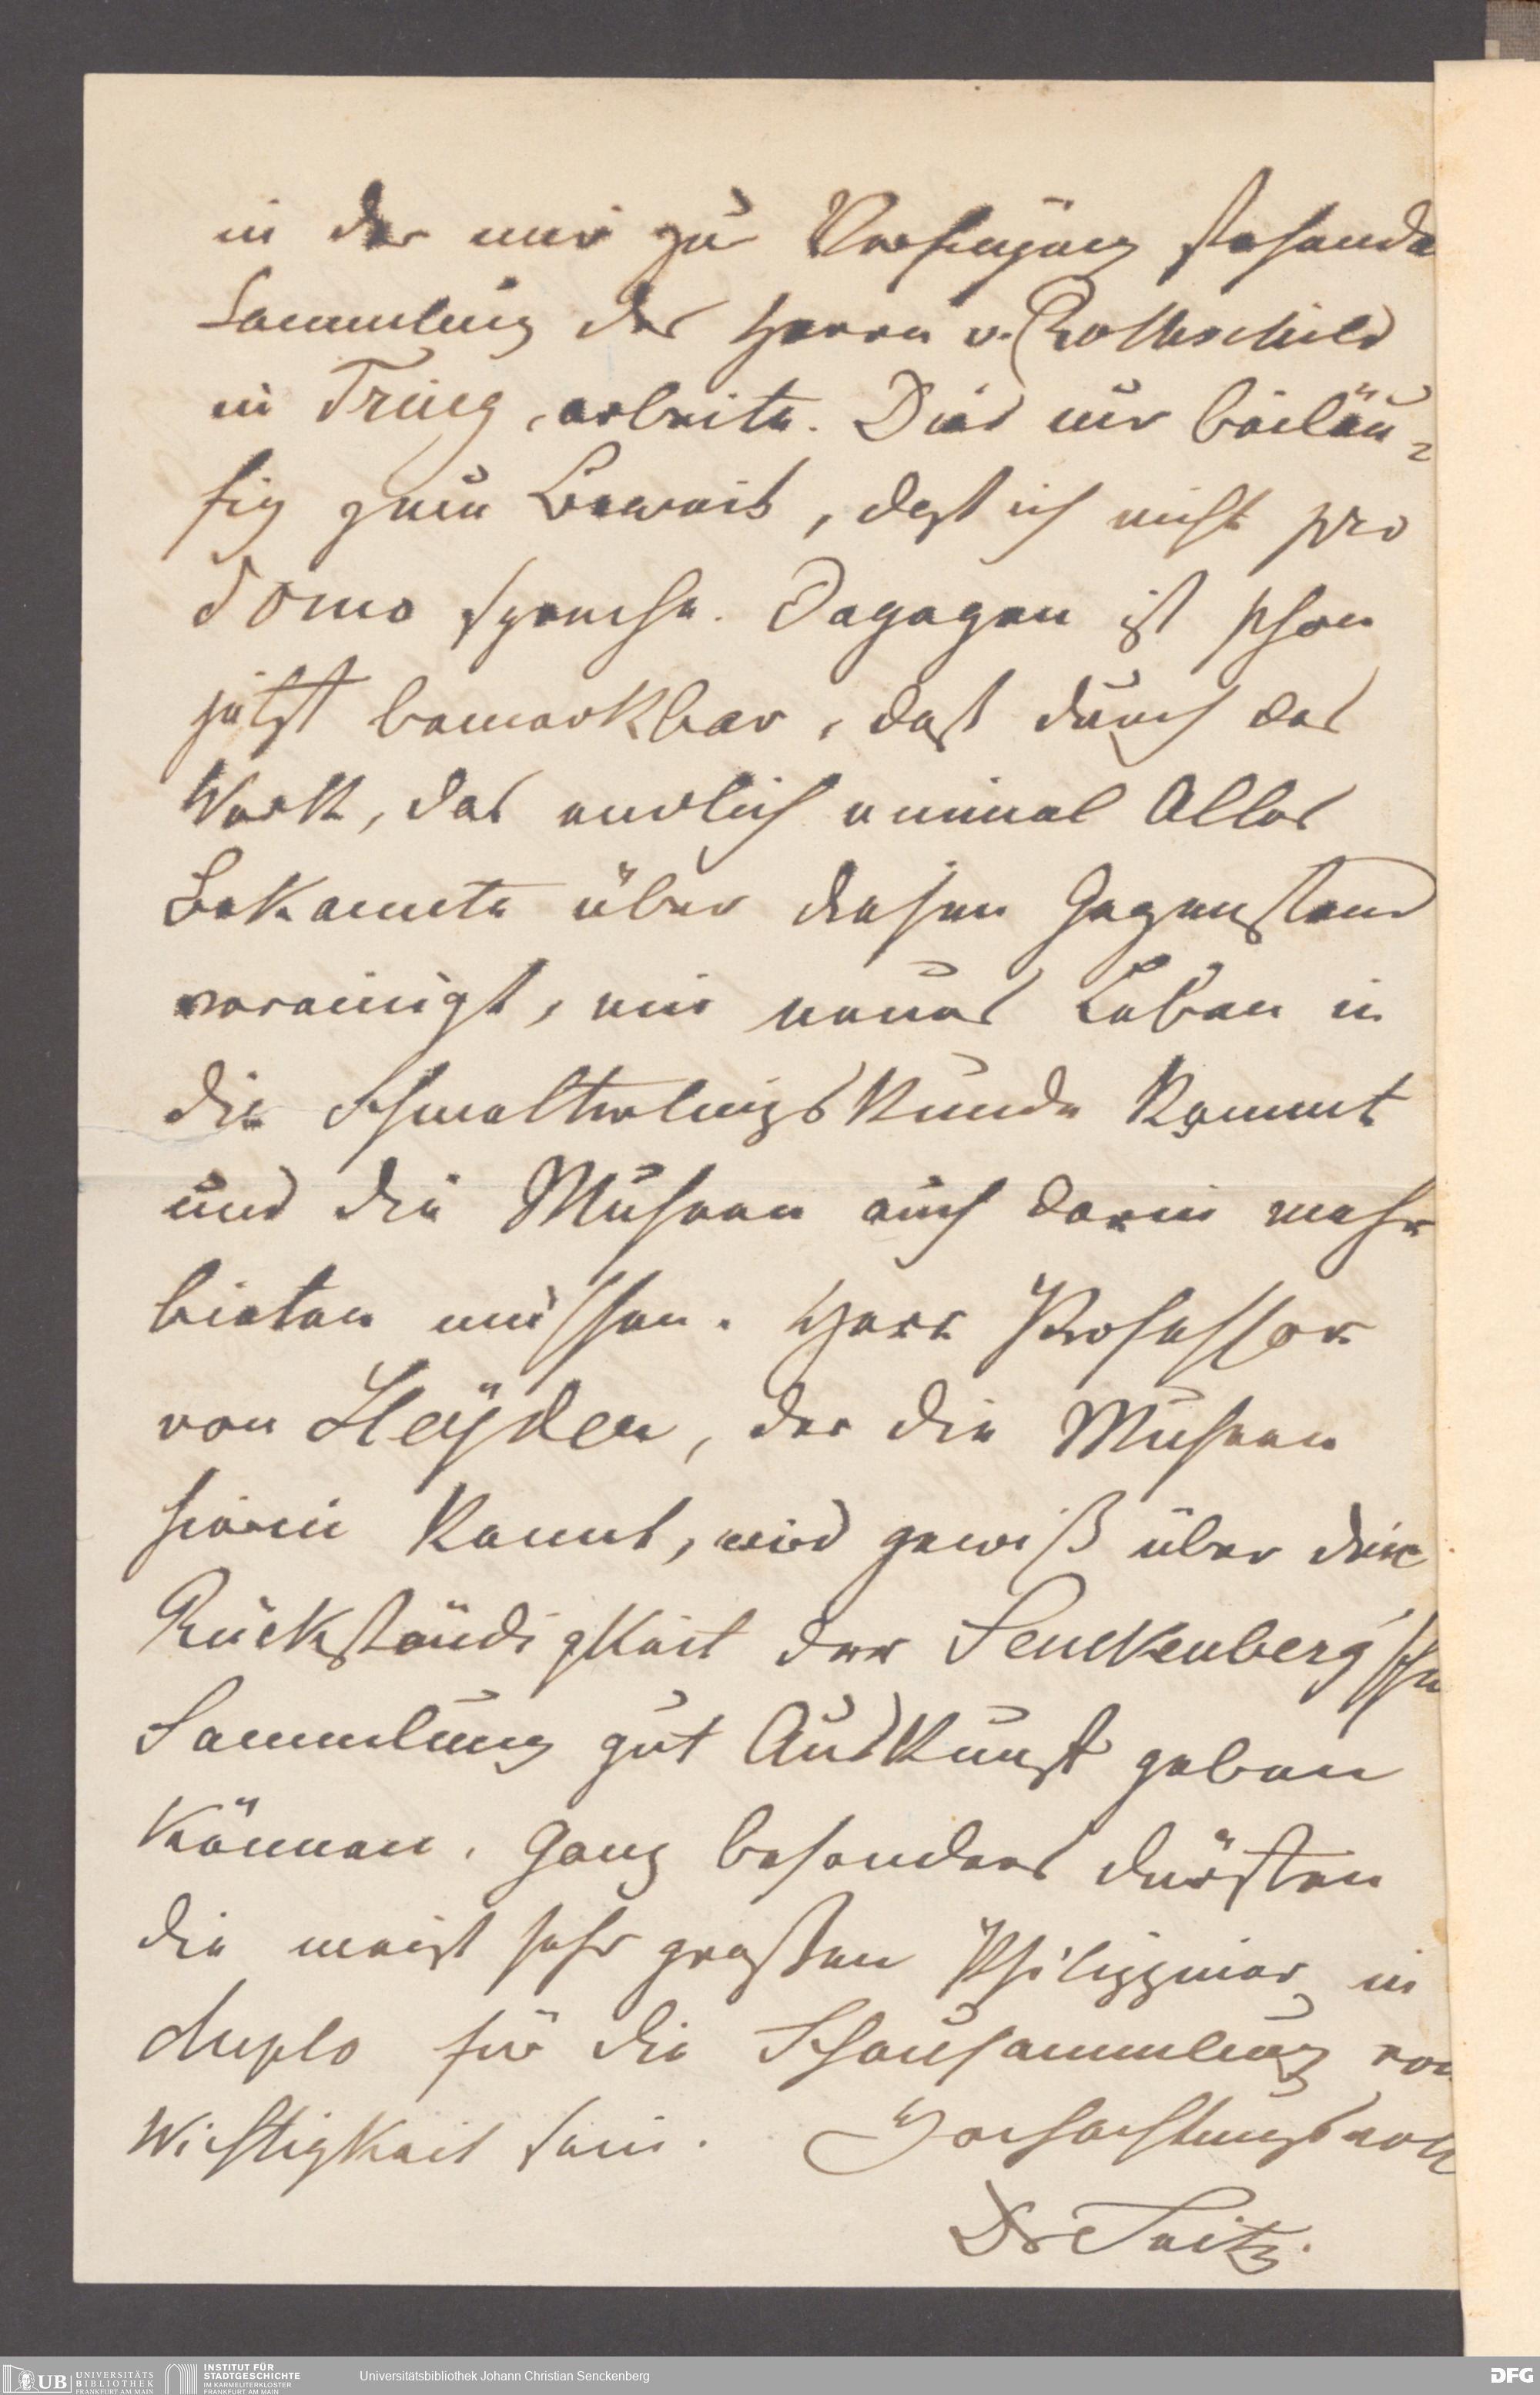 in der mir zur Verfügung stehende
Sammlung des Herrn v. Rothschild
in Tring, arbeite. Dies nur beiläu-
fig zum Beweis, daß ich nicht pro
domo spreche. Dagegen ist schon
jetzt bemerkbar, daß durch das
Werk, das endlich einmal Alles
Bekannte über diesen Gegenstand
vereinigt, ein neues Leben in
die Schmetterlingskunde kommt
und die Museen auch darin mehr
bieten müssen. Herr Professor
von Heÿden, der die Museen
hierin kennt, wird gewiß über die
Rückständigkeit der Senckenberg'schen
Sammlung gut Auskunft geben
können. Ganz besonders dürften
die meist sehr großen Philippiner in
duplo für die Schausammlung von
Wichtigkeit sein. Hochachtungsvoll
Dr Seitz.
UB UNIVERSITÄTS
BIBLIOTHEK
FRANKFURT AM MAIN
INSTITUT FÜR
STADTGESCHICHTE
IM KARMELITERKLOSTER
FRANKFURT AM MAIN
Universitätsbibliothek Johann Christian Senckenberg
DFG